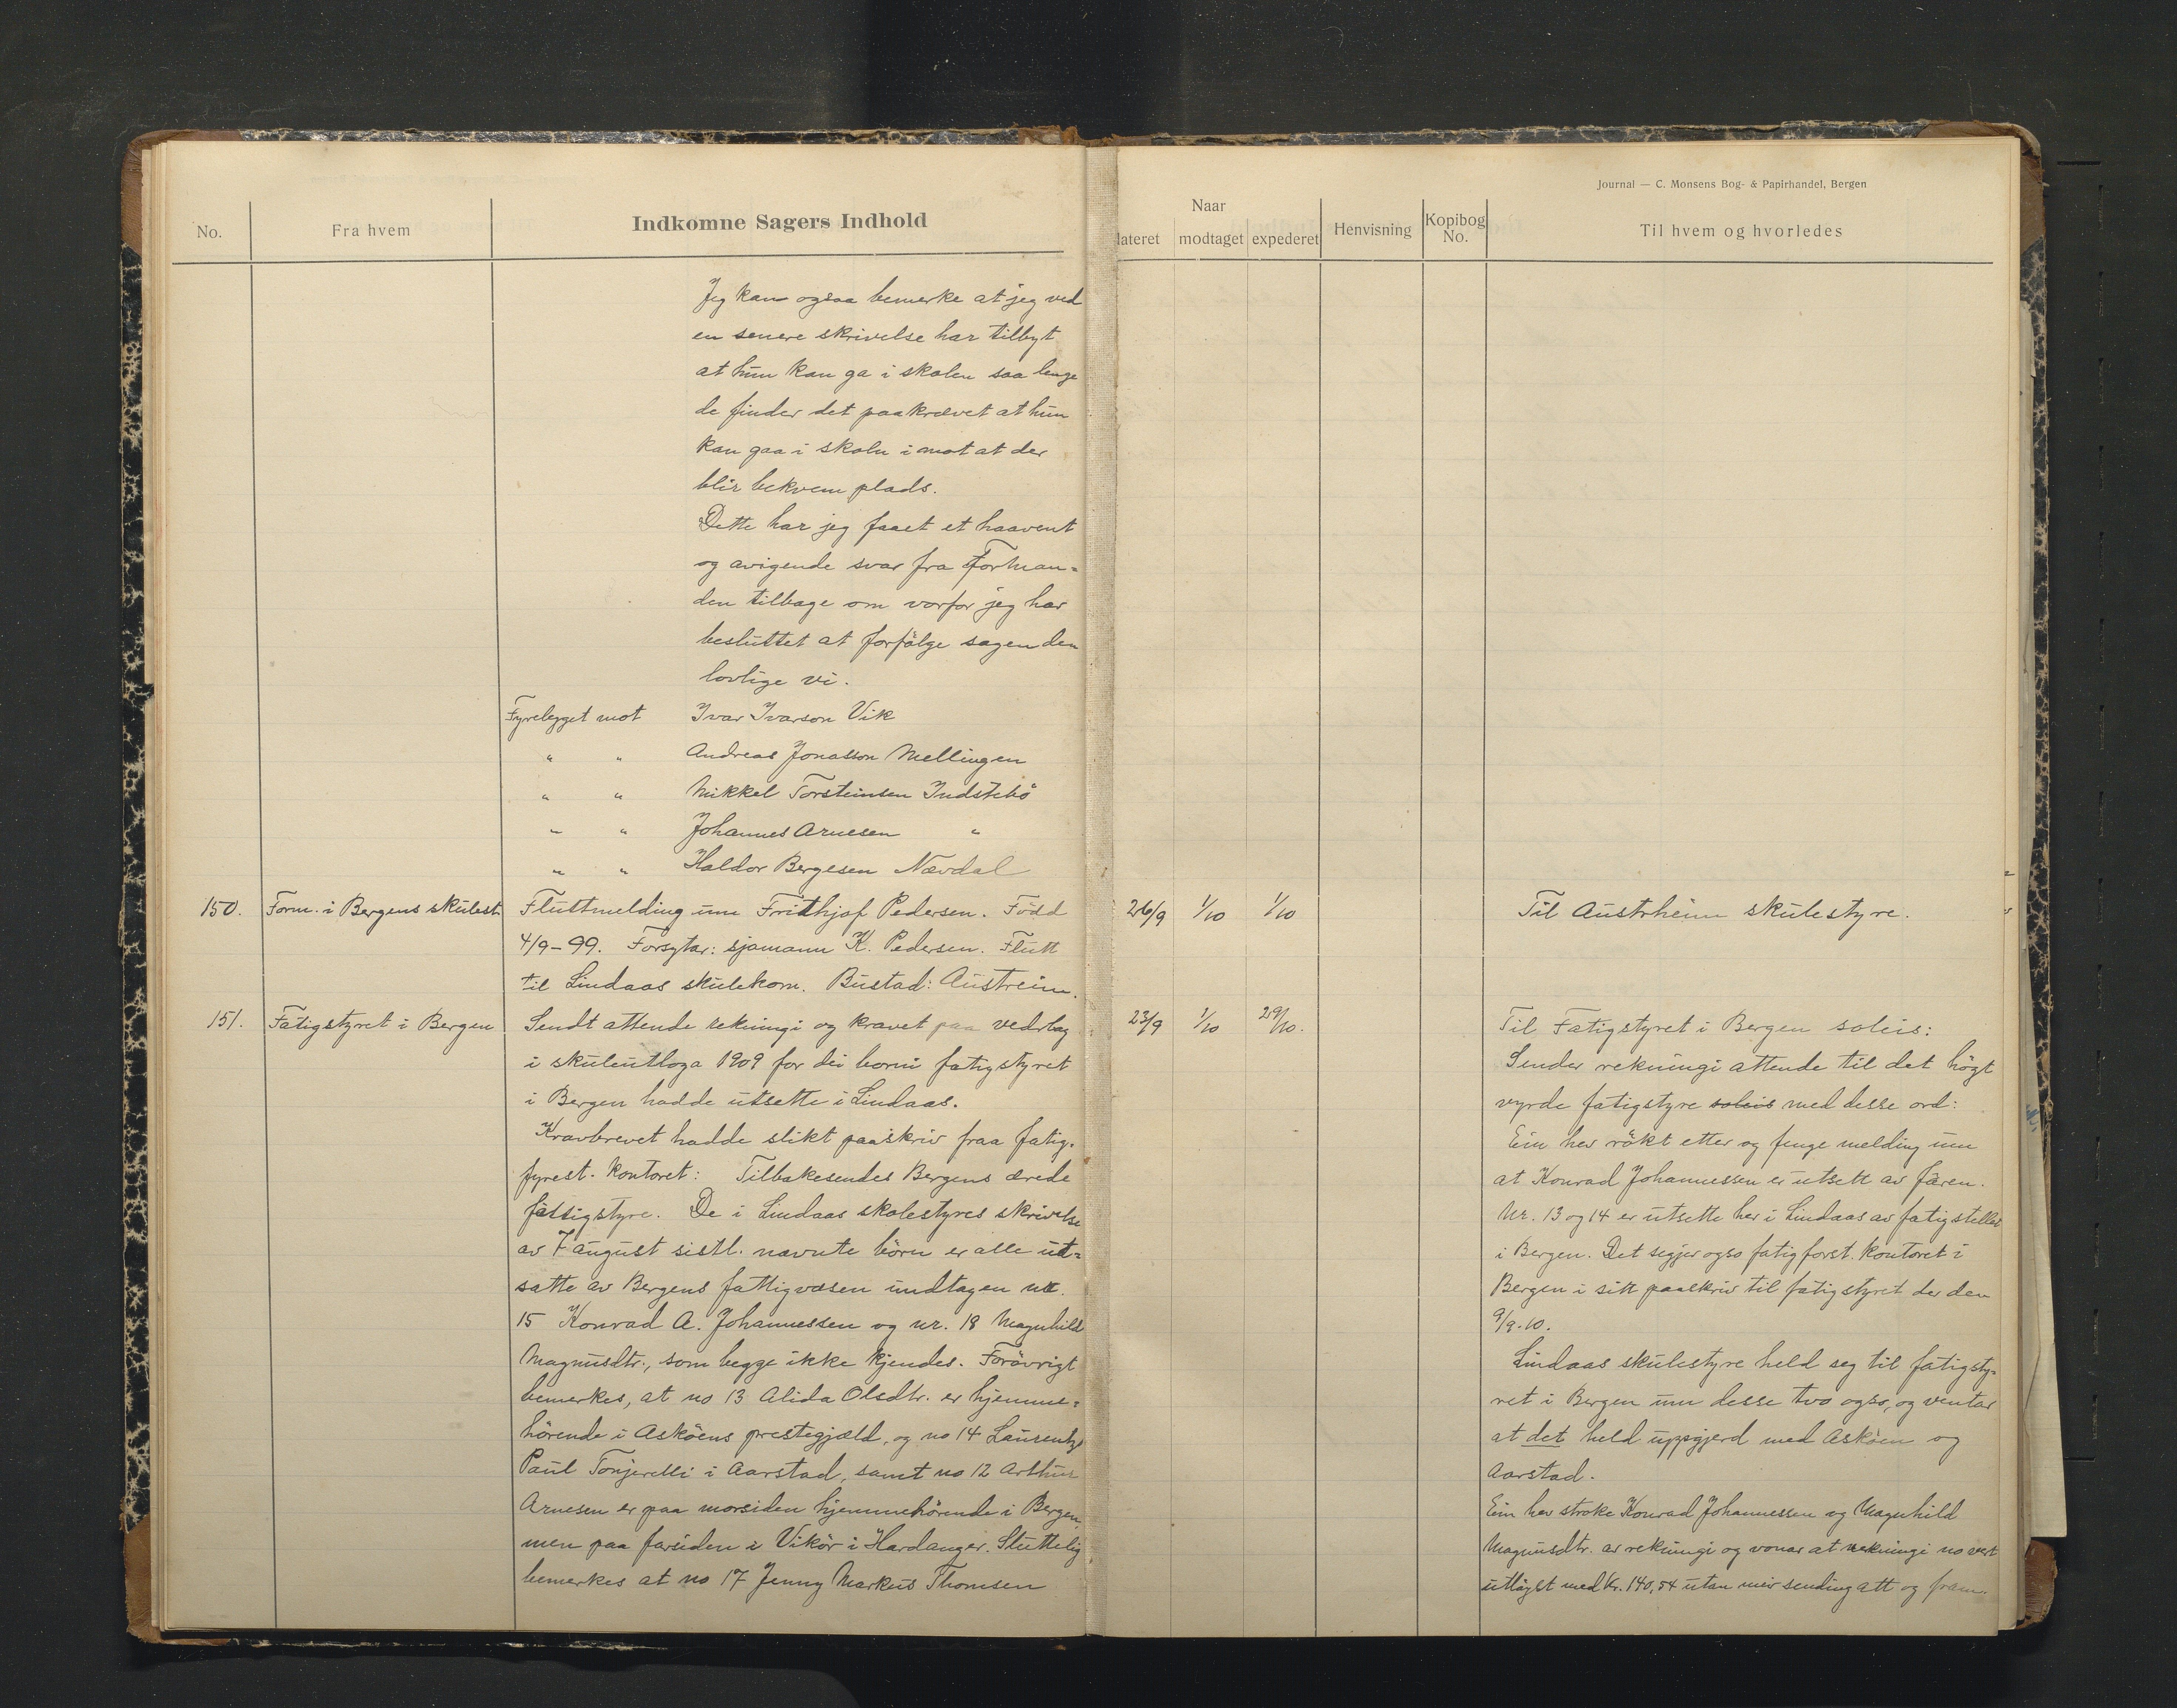 Journal — C. Monsens Bog- & Papirhandel, Bergen
No.
Fra hvem
Indkomne Sagers Indhold
Naar
dateret
modtaget
expederet
Henvisning
Kopibog No.
Til hvem og hvorledes
Jeg kan ogsaa bemerke at jeg ved
en senere skrivelse har tilbyt
at hun kan ga i skolen saa lenge
de finder det paakrævet at hun
kan gaa i skoln i mot at der
blir bekvem plads.
Dette har jeg faaet et haavent
og avigende svar fra Forman=
den tilbage om vorfor jeg har
besluttet at forfölge sagen den
lovlige vi.
Fyrelegget mot Ivar Ivarson Vik
" " Andreas Jonasson Mellingen
" " Mikkel Torsteinsen Indstebö
" " Johannes Arnesen "
" " Haldor Bergesen Nævdal
150. Form. i Bergens skulest. Fluttmelding um Fridthjof Pedersen. Född 26/9 1/10 1/10 Til Austrheim skulestyre.
4/9-99. Forsytar: sjömann K. Pedersen. Flutt
til Lindaas skulekom. Bustad: Austreim.
151. Fatigstyret i Bergen Sendt attende rekningi og kravet paa vederlag 23/9 1/10 29/10.
i skuleutloga 1909 for dei borni fatigstyret
i Bergen hadde utsette i Lindaas.
Kravbrevet hadde slikt paaskriv fraa fatig.
fyrest. kontoret: Tilbakesendes Bergens ærede
fattigstyre. De i Lindaas skolestyres skrivelse
av 7 august sistl. nævnte börn er alle ut=
satte av Bergens fattigvæsen undtagen nr.
15 Konrad A. Johannessen og nr. 18 Magnhild
Magnusdtr., som begge ikke kjendes. Forövrigt
bemerkes, at no 13 Alida Olsdtr. er hjemme=
hörende i Asköens prestegjæld, og no 14 Laurentze
Paul Tonjerelli i Aarstad, samt no 12 Arthur
Arnesen er paa morsiden hjemmehörende i Bergen,
men paa farsiden i Vikör i Hardanger. Sluttelig
bemerkes at no 17 Jenny Markus Thomsen
Til Fatigstyret i Bergen soleis:
Sender rekningi attende til det högt
vyrde fatigstyre soleis med desse ord:
Ein hev rökt etter og fenge melding um
at Konrad Johannessen er utsett av faren.
Nr. 13 og 14 er utsette her i Lindaas av fatigstellet
i Bergen. Det segjer ogso fatigforst. kontoret i
Bergen i sitt paaskriv til fatigstyret der den
9/9.10.
Lindaas skulestyre held seg til fatigsty=
ret i Bergen um desse tvo ogso, og ventar
at det held uppgjerd med Asköen og
Aarstad.
Ein hev stroke Konrad Johannessen og Magnhild
Magnusdtr. av rekningi og vonar at rekningi no vert
utlöyst med kr. 140,54 utan meir sending att og fram.